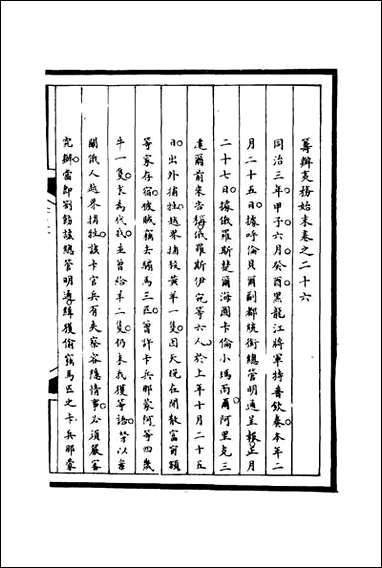 籌辦夷務始末卷之二十六
同治三年甲子六月癸酉黑龍江將軍特普欽奏本年二
月二十五日據呼倫貝爾副都統銜總管明通呈報正月
二十七日據俄羅斯楚爾海圖卡倫小瑪雨爾阿里克三
達爾前來告稱俄羅斯伊完等六人於上年十月二十五
日出外捕牲越界捕殺黃羊一隻因天晚在閑散富前額
等家存宿被賊竊去騸馬三匹曾許卡兵那蒙阿等四幾
牛一隻羊為代我並曾給羊二隻仍未我獲等語等以案
關俄人越界捕牲該卡官兵有失察容隱情事亟須嚴審
究辦當即劄飭該總管明通緝獲偷竊馬匹之卡兵那蒙